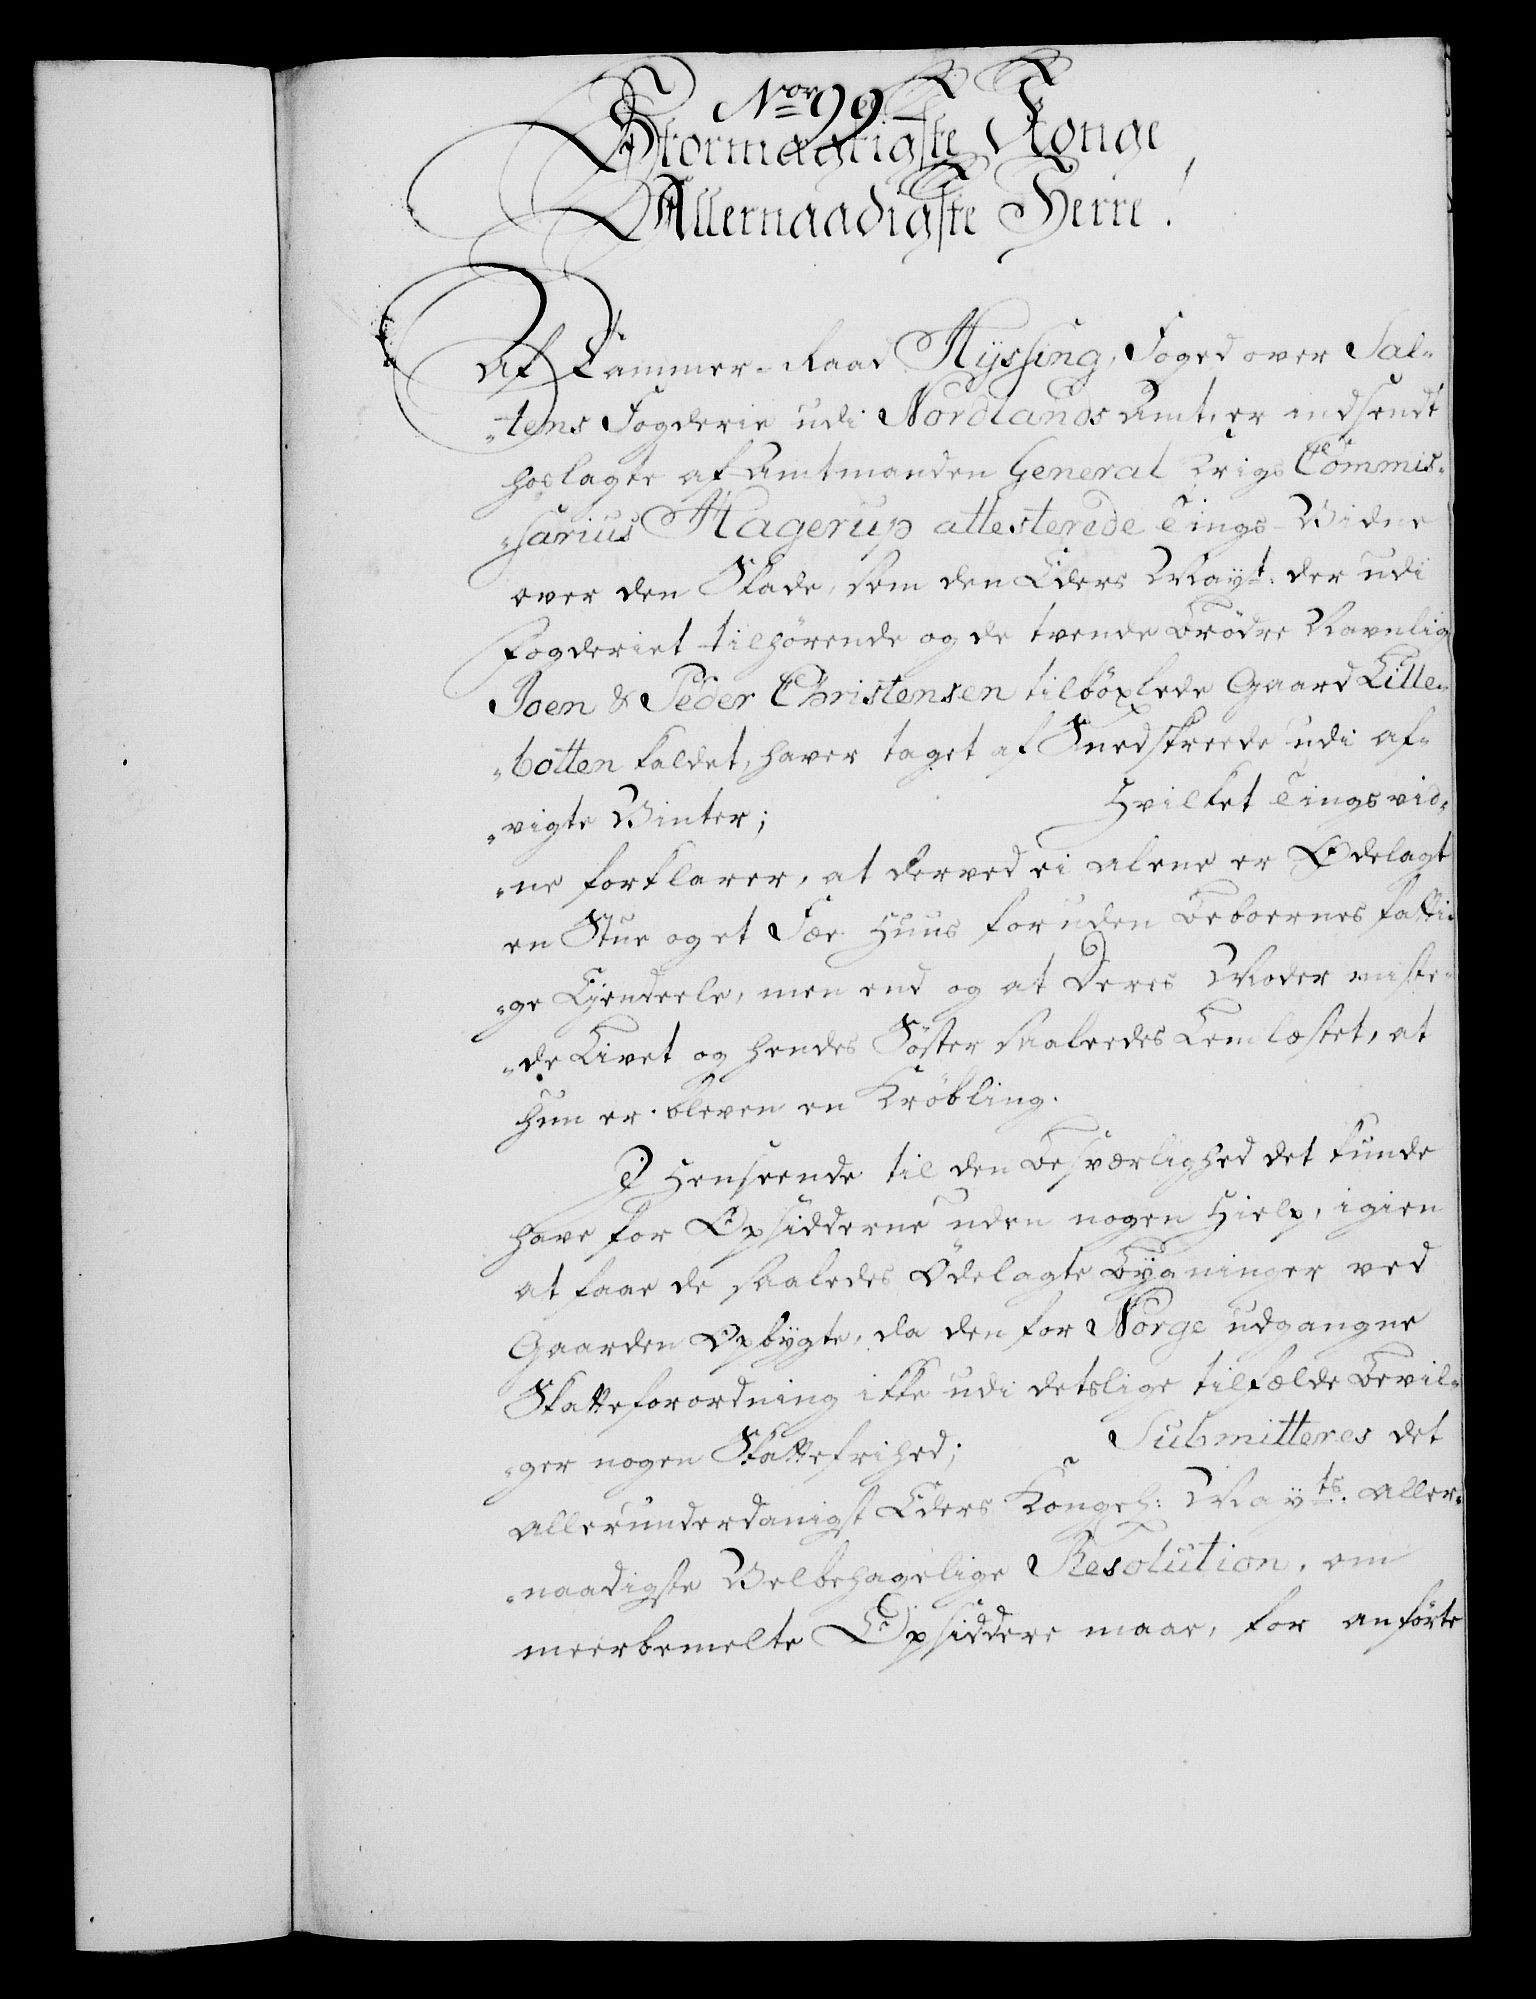 Nor 99
Stormægtigste Konge
Allernaadigste Herre!
Af Cammer-Raad Hÿssing, Foged over Sal-
-tens Fogderie udi Nordlands Amt, er indsendt
hoslagte af Amtmanden General Krigs Commis-
-sarius Hagerup attesterede Tings-Vidne
over den Skade, som den Eders Mayt: der udi
Fogderiet tilhørende og de tvende Brødre Navnlig
Joen & Peder Christensen tilbøxlede Gaard Lille-
-botten kaldet, haver taget af Sneeskreede udi af-
-vigte Vinter; Hvilket Tingsvid-
-ne forklarer, at derved ei alene er Ødelagt
en Stue og et Fæe Huus foruden Beboernes fatti-
-ge Ejendeele, men end og at Deres Moder miste-
-de Livet og hendes Søster saaledes Lemlæstet, at
hun er bleven en Krøbling.
I Henseende til den Besværlighed det kunde
have for Opsidderne uden nogen Hielp, igien
at faae de saaledes Ødelagte Bÿgninger ved
Gaarden Opbÿgte, da den for Norge udgangne
Skatteforordning ikke udi deslige tilfælde Bevil-
-ger nogen Skattefrihed; Submitteres det
allerunderdanigst Eders Kongel: Mayts. Aller-
-naadigste Velbehagelige Resolution, om
meerbemelte Opsiddere maae, for anførte